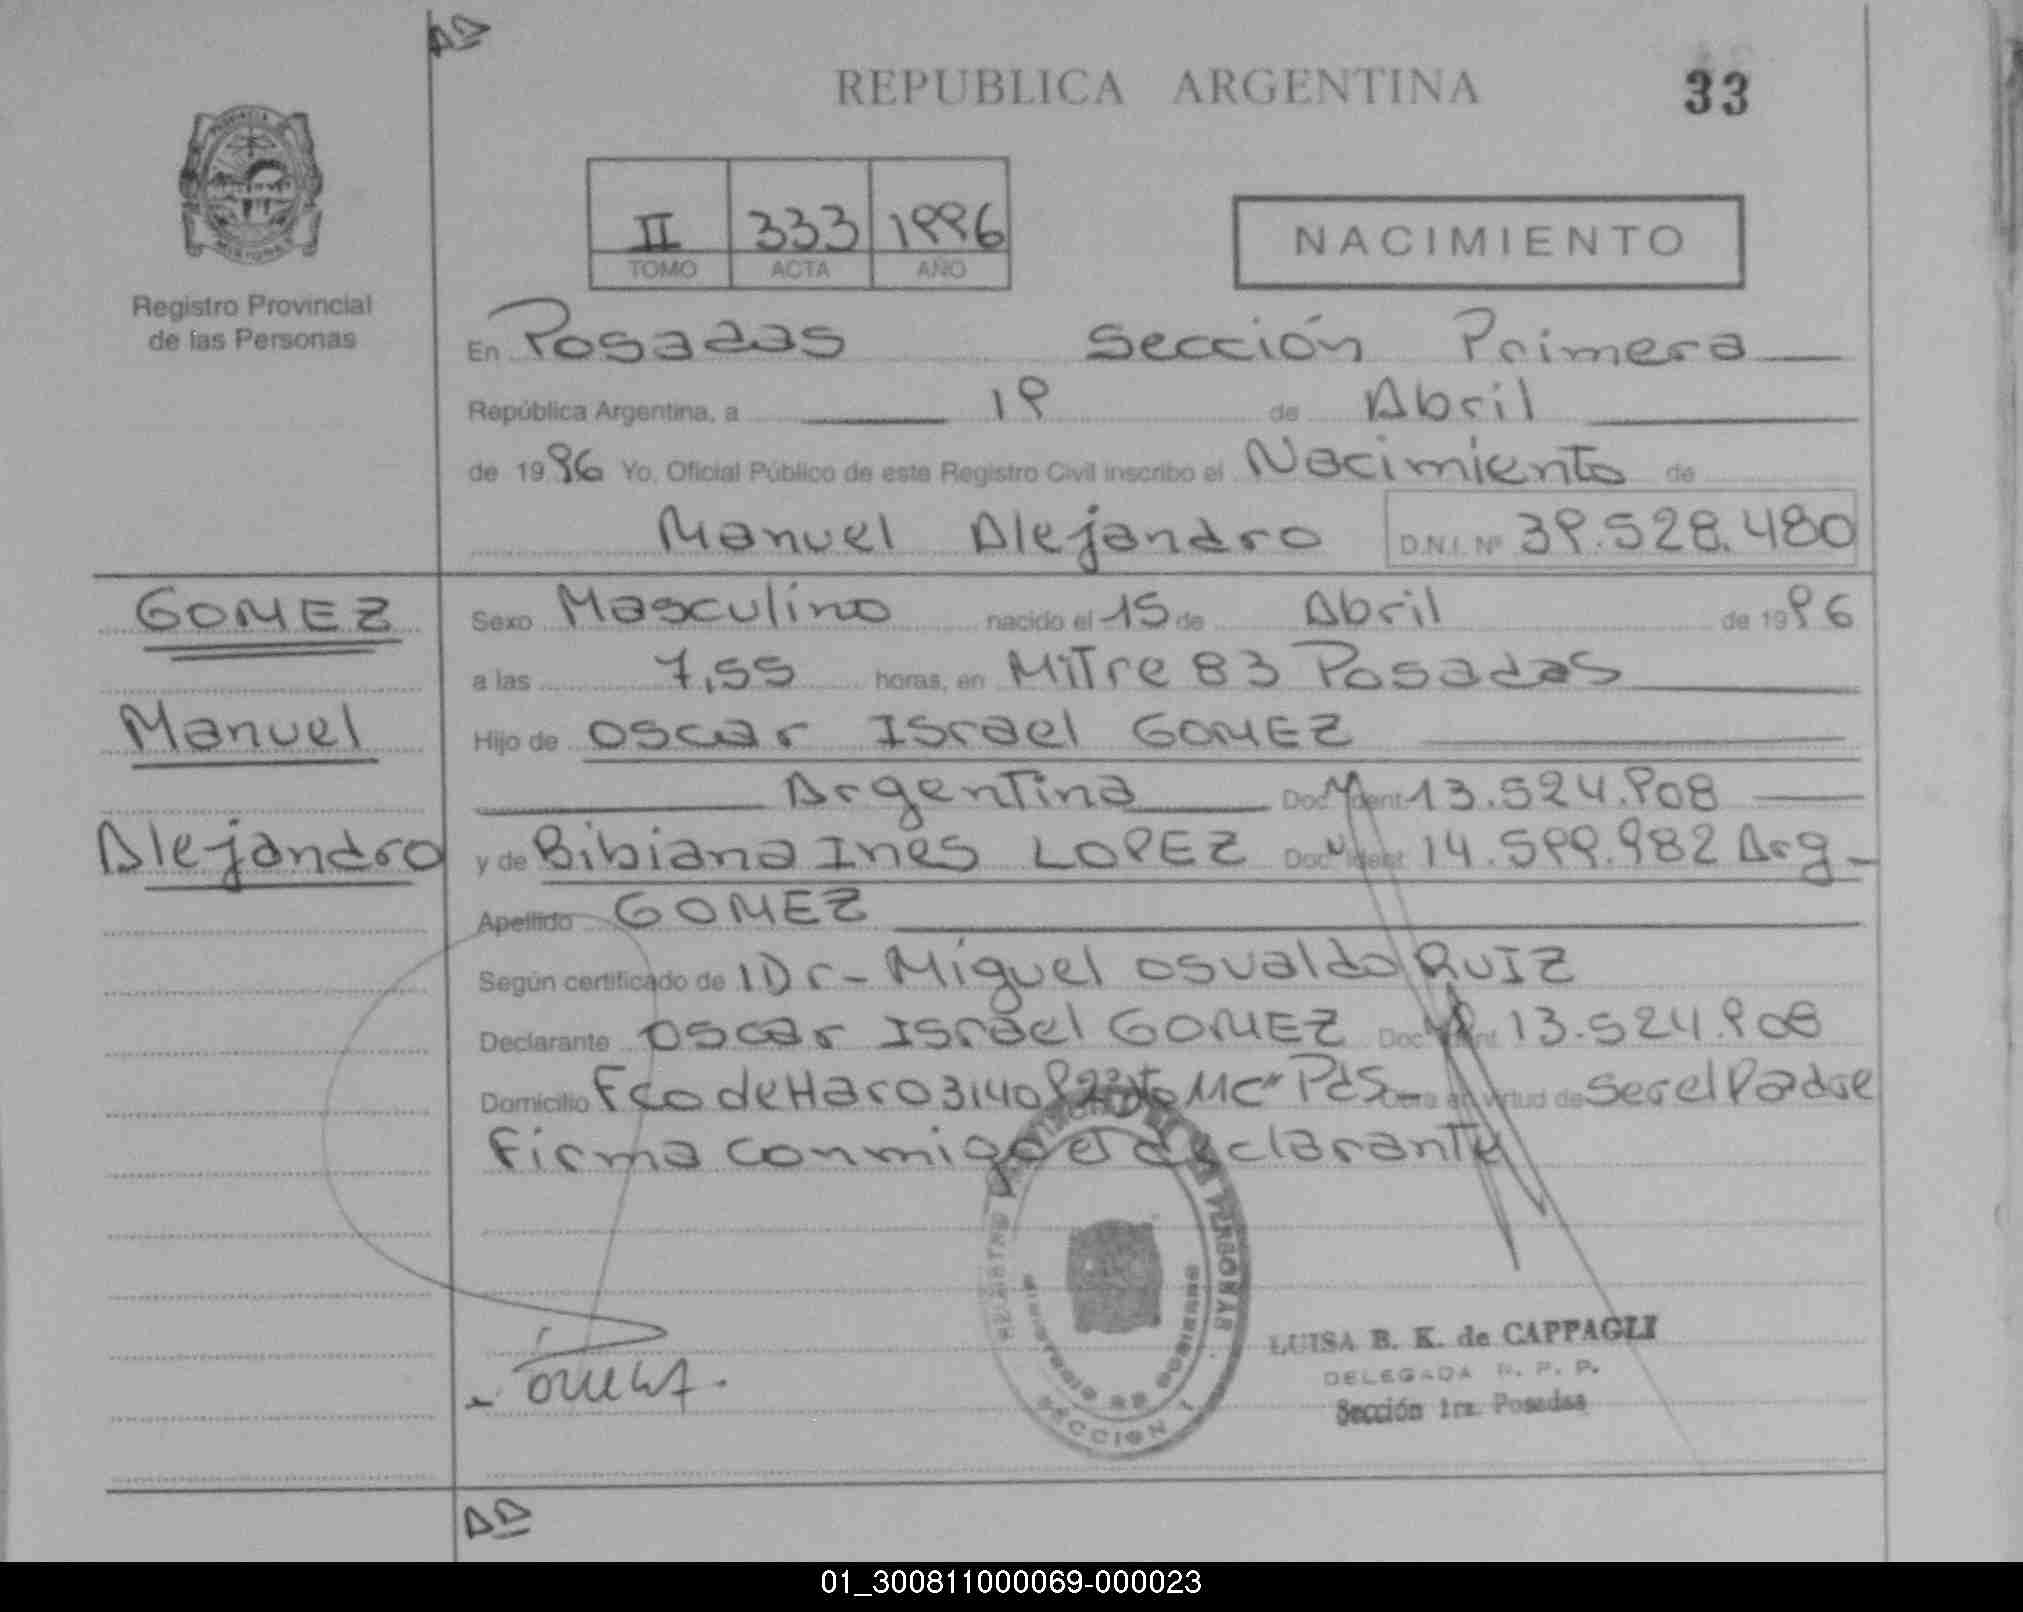 REPUBLICA ARGENTINA
33
Registro Provincial
de las Personas
II 333 1996
TOMO ACTA AÑO
NACIMIENTO
En Posadas Sección Primera
República Argentina, a 19 de Abril
de 1996 Yo, Oficial Público de este Registro Civil inscribo el Nacimiento de
Manuel Alejandro D.N.I. Nº 39.528.480
GOMEZ
Manuel
Alejandro
Sexo Masculino nacido el 15 de Abril de 1996
a las 7,55 horas, en Mitre 83 Posadas
Hijo de Oscar Israel GOMEZ
Argentina Doc. Ident 13.524.908
y de Bibiana Ines LOPEZ Doc. Ident 14.599.982 Arg-
Apellido GOMEZ
Según certificado de Dr- Miguel Osvaldo RUIZ
Declarante Oscar Israel GOMEZ Doc. Ident 13.524.908
Domicilio Fco de Haro 3140 Pds- Obra en virtud de Ser el Padre
Firma conmigo el declarante
REGISTRO PERSONAS
MINISTERIO DE GOBIERNO
SECCION 1
LUISA B. K. de CAPPAGLI
DELEGADA R. P. P.
Sección 1ra. Posadas
01_300811000069-000023